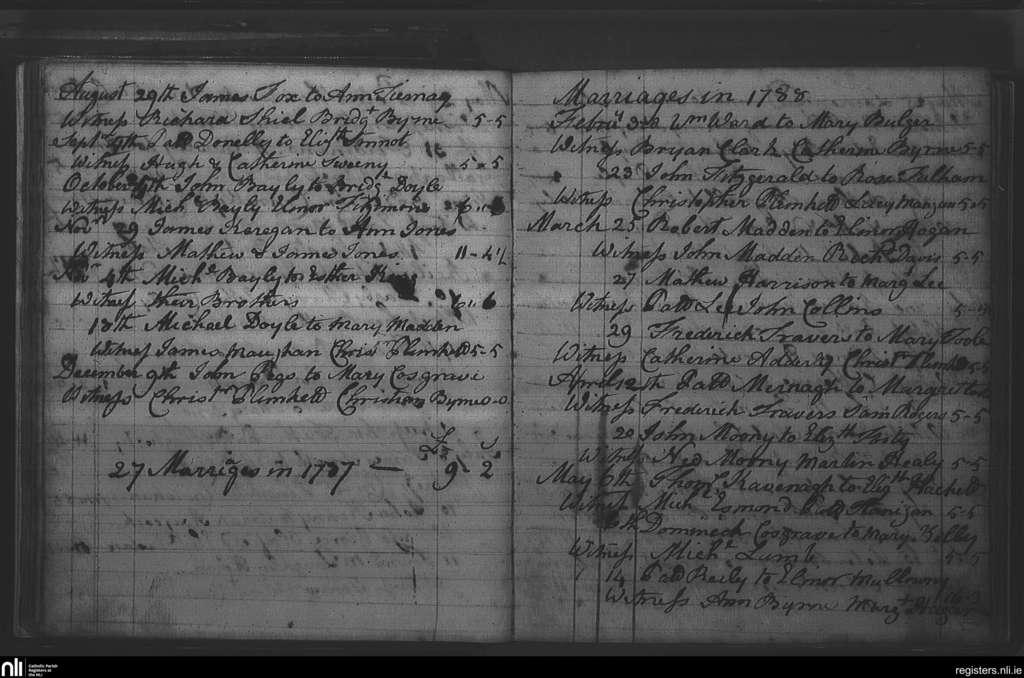 August 29th James Fox to Ann Tiernay
Witness Richard Shiel Bridgt Byrne 5-5
Sept 9th Patt Donelly to Elizth Sinnot
Witness Hugh & Catherine Sweeny 5-5
October John Bayly to Bridgt Doyle
Witness Mich Bayly Elonor Fitzmons
Novr 29 James Keregan to Ann Jones
Witness Mathew & James Jones 11-4½
4th Michl Bayly to Esther
Witness their Brothers
18th Michael Doyle to Mary Madden
Witness James Maughan Christ Plunkett 5-5
December 9th John Pegs to Mary Cosgrave
Witness Christr Plunkett Christian Byrne 0-0
£ s
27 Marriages in 1787 — 9 2
Marriages in 1788
Febru 3d Wm Ward to Mary Bulger
Witness Bryan Clark Catherine Byrne 5-5
23 John Fitzgerald to Rose Fulham
Witness Christopher Plunkett Lucy Mangan 5-5
March 25 Robert Madden to Elinor Hogan
Witness John Madden Richd Davis 5-5
27 Mathew Harrison to Margt Lee
Witness Patt Lee John Collins 5-5
29 Frederick Travers to Mary Toole
Witness Catherine Adderly Christr Plunkett 5-5
April 12th Patt Mernagh to Margaret
Witness Frederick Travers Jam Rogers 5-5
20 John Moony to Elizth
Witness Ned Moony Martin Healy 5-5
May 6th Thoms Kavenagh to Elizth Hackett
Witness Michl Esmond Patt Flanigan 5-5
Domineck Cosgrave to Mary Kelley
Witness Michl 5-5
14 Patt Reily to Elinor Mullowny
Witness Ann Byrne Margt
nli Catholic Parish Registers at the NLI
registers.nli.ie